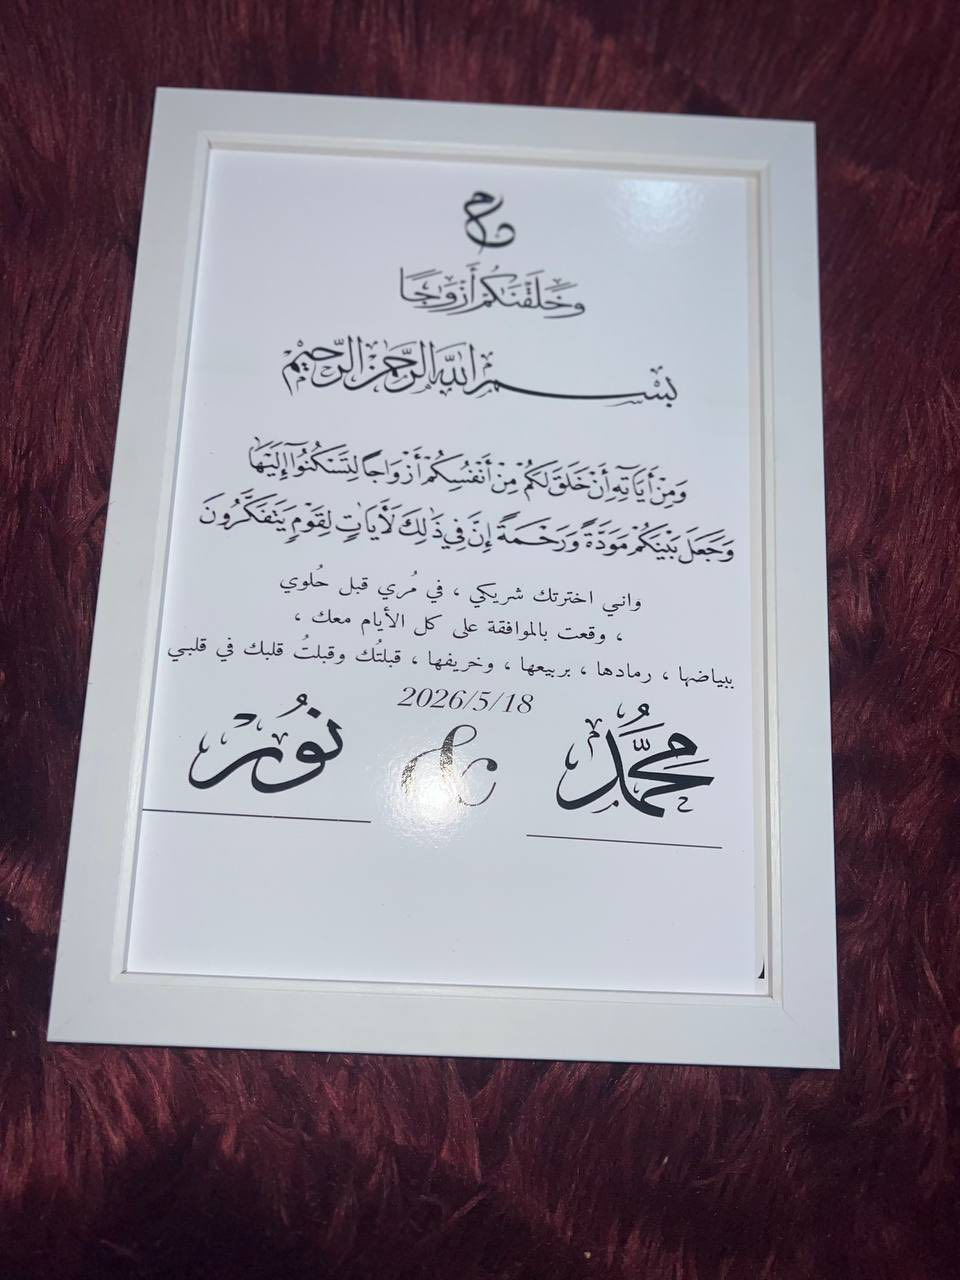 وَخَلَقْنَاكُمْ أَزْوَاجًا
بِسْمِ اللَّهِ الرَّحْمَنِ الرَّحِيمِ
وَمِنْ أَيَاتِهِ أَنْ خَلَقَ لَكُمْ مِنْ أَنْفُسِكُمْ أَزْوَاجًا لِتَسْكُنُوا إِلَيْهَا
وَجَعَلَ بَيْنَكُمْ مَوَدَّةً وَرَحْمَةً إِنَّ فِي ذَلِكَ لَأَيَاتٍ لِقَوْمٍ يَتَفَكَّرُونَ
واني اخترتك شريكي ، في مُري قبل حُلوي
، وقعت بالموافقة على كل الأيام معك ،
ببياضها ، رمادها ، بربيعها ، وخريفها ، قبلتُك وقبلتُ قلبك في قلبي
2026/5/18
مُحَمَّد & نُور